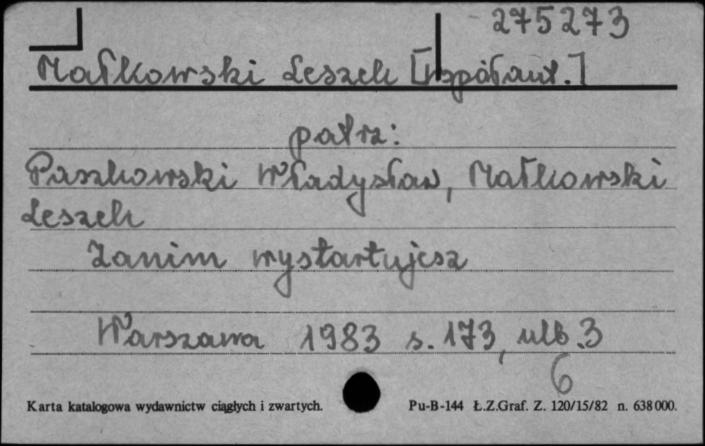 275273
Małkowski Leszek [współaut.]
patrz:
Paszkowski Władysław, Małkowski
Leszek
Zanim wystartujesz
Warszawa 1983 s. 173, ulb. 3
6
Karta katalogowa wydawnictw ciągłych i zwartych. Pu-B-144 Ł.Z.Graf. Z. 120/15/82 n. 638000.